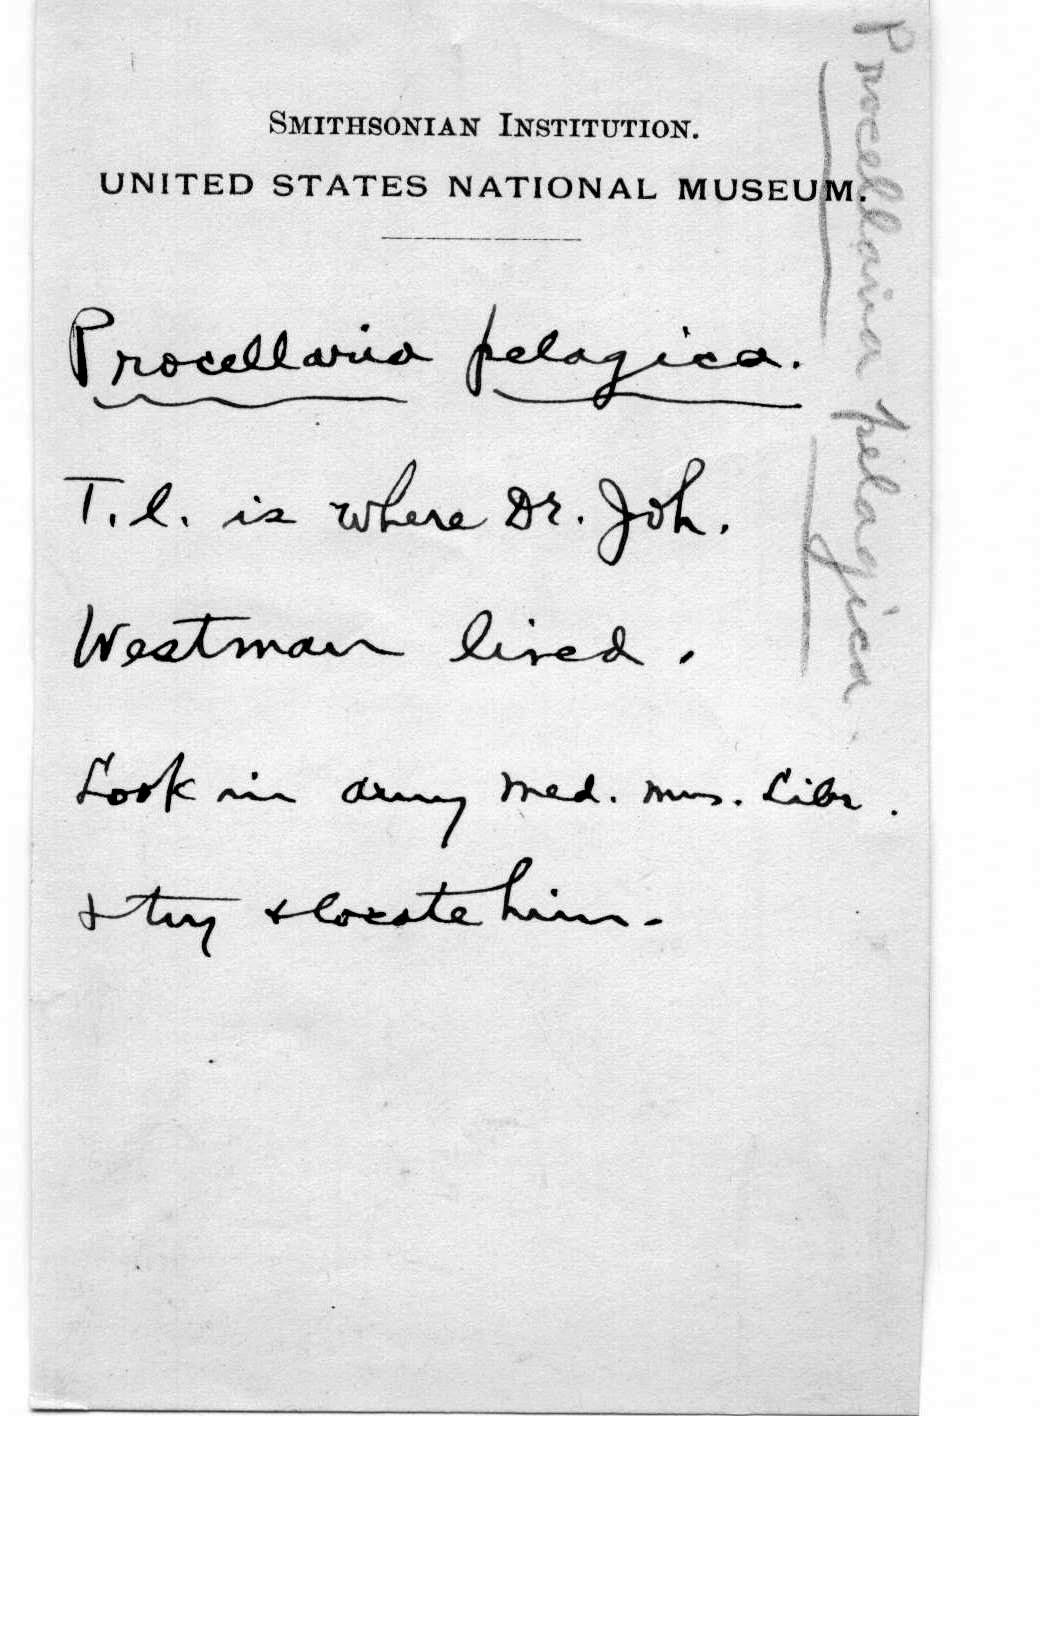 SMITHSONIAN INSTITUTION.
UNITED STATES NATIONAL MUSEUM.
Procellaria pelagica.
T.l. is where Dr. Joh.
Westman lived.
Look in army med. mus. Libr.
& try & locate him-
Procellaria pelagica